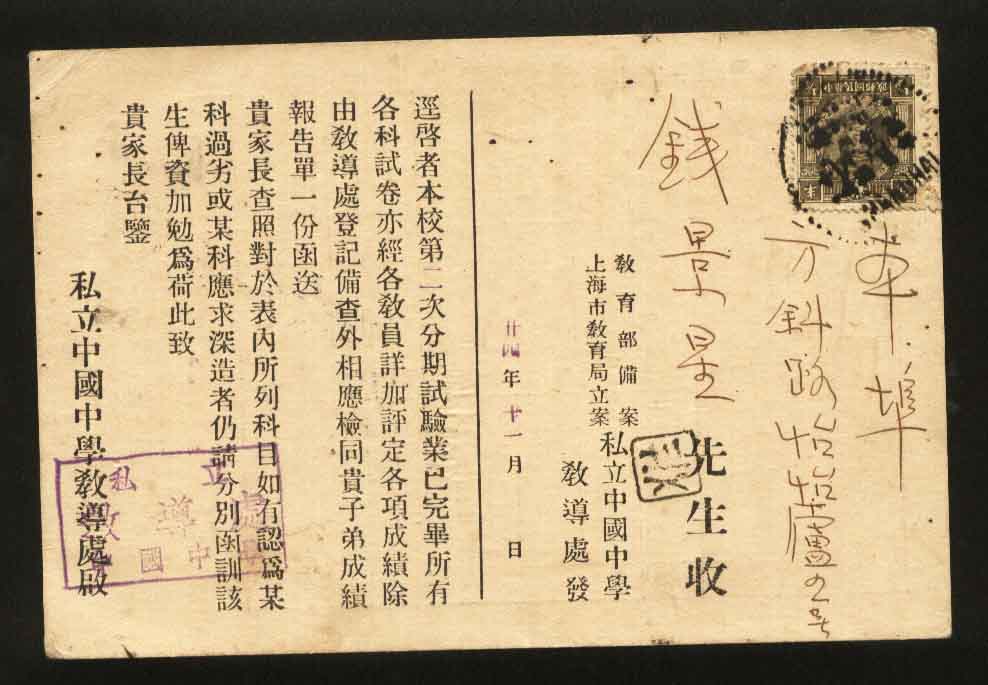 本埠
方斜路怡怡廬2号
錢景星
先生收
教育部備案
上海市教育局立案
私立中國中學
教導處發
廿四年十一月 日
逕啓者本校第二次分期試驗業已完畢所有
各科試卷亦經各教員詳加評定各項成績除
由教導處登記備查外相應檢同貴子弟成績
報告單一份函送
貴家長查照對於表內所列科目如有認爲某
科過劣或某科應求深造者仍請分別函訓該
生俾資加勉爲荷此致
貴家長台鑒
私立中國中學教導處啟